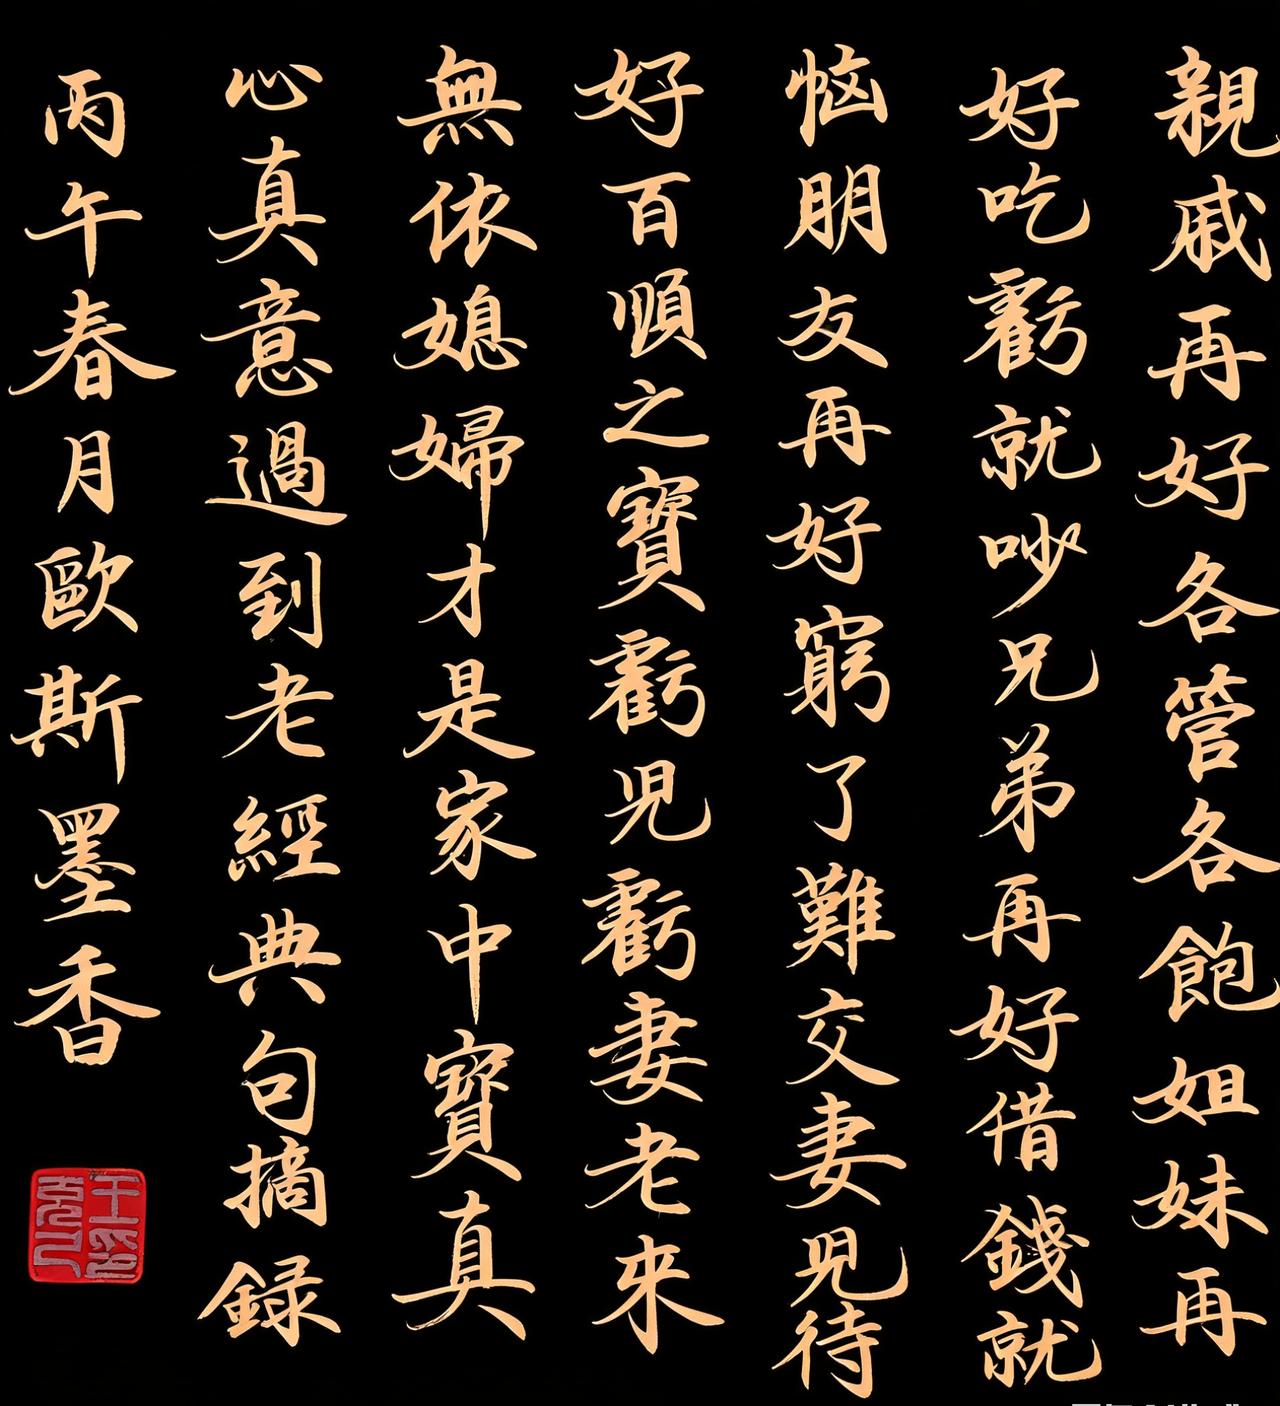 親戚再好各管各飽姐妹再
好吃虧就吵兄弟再好借錢就
恼朋友再好窮了難交妻児待
好百順之寶虧児虧妻老來
無依媳婦才是家中寶真
心真意過到老經典句摘録
丙午春月歐斯墨香